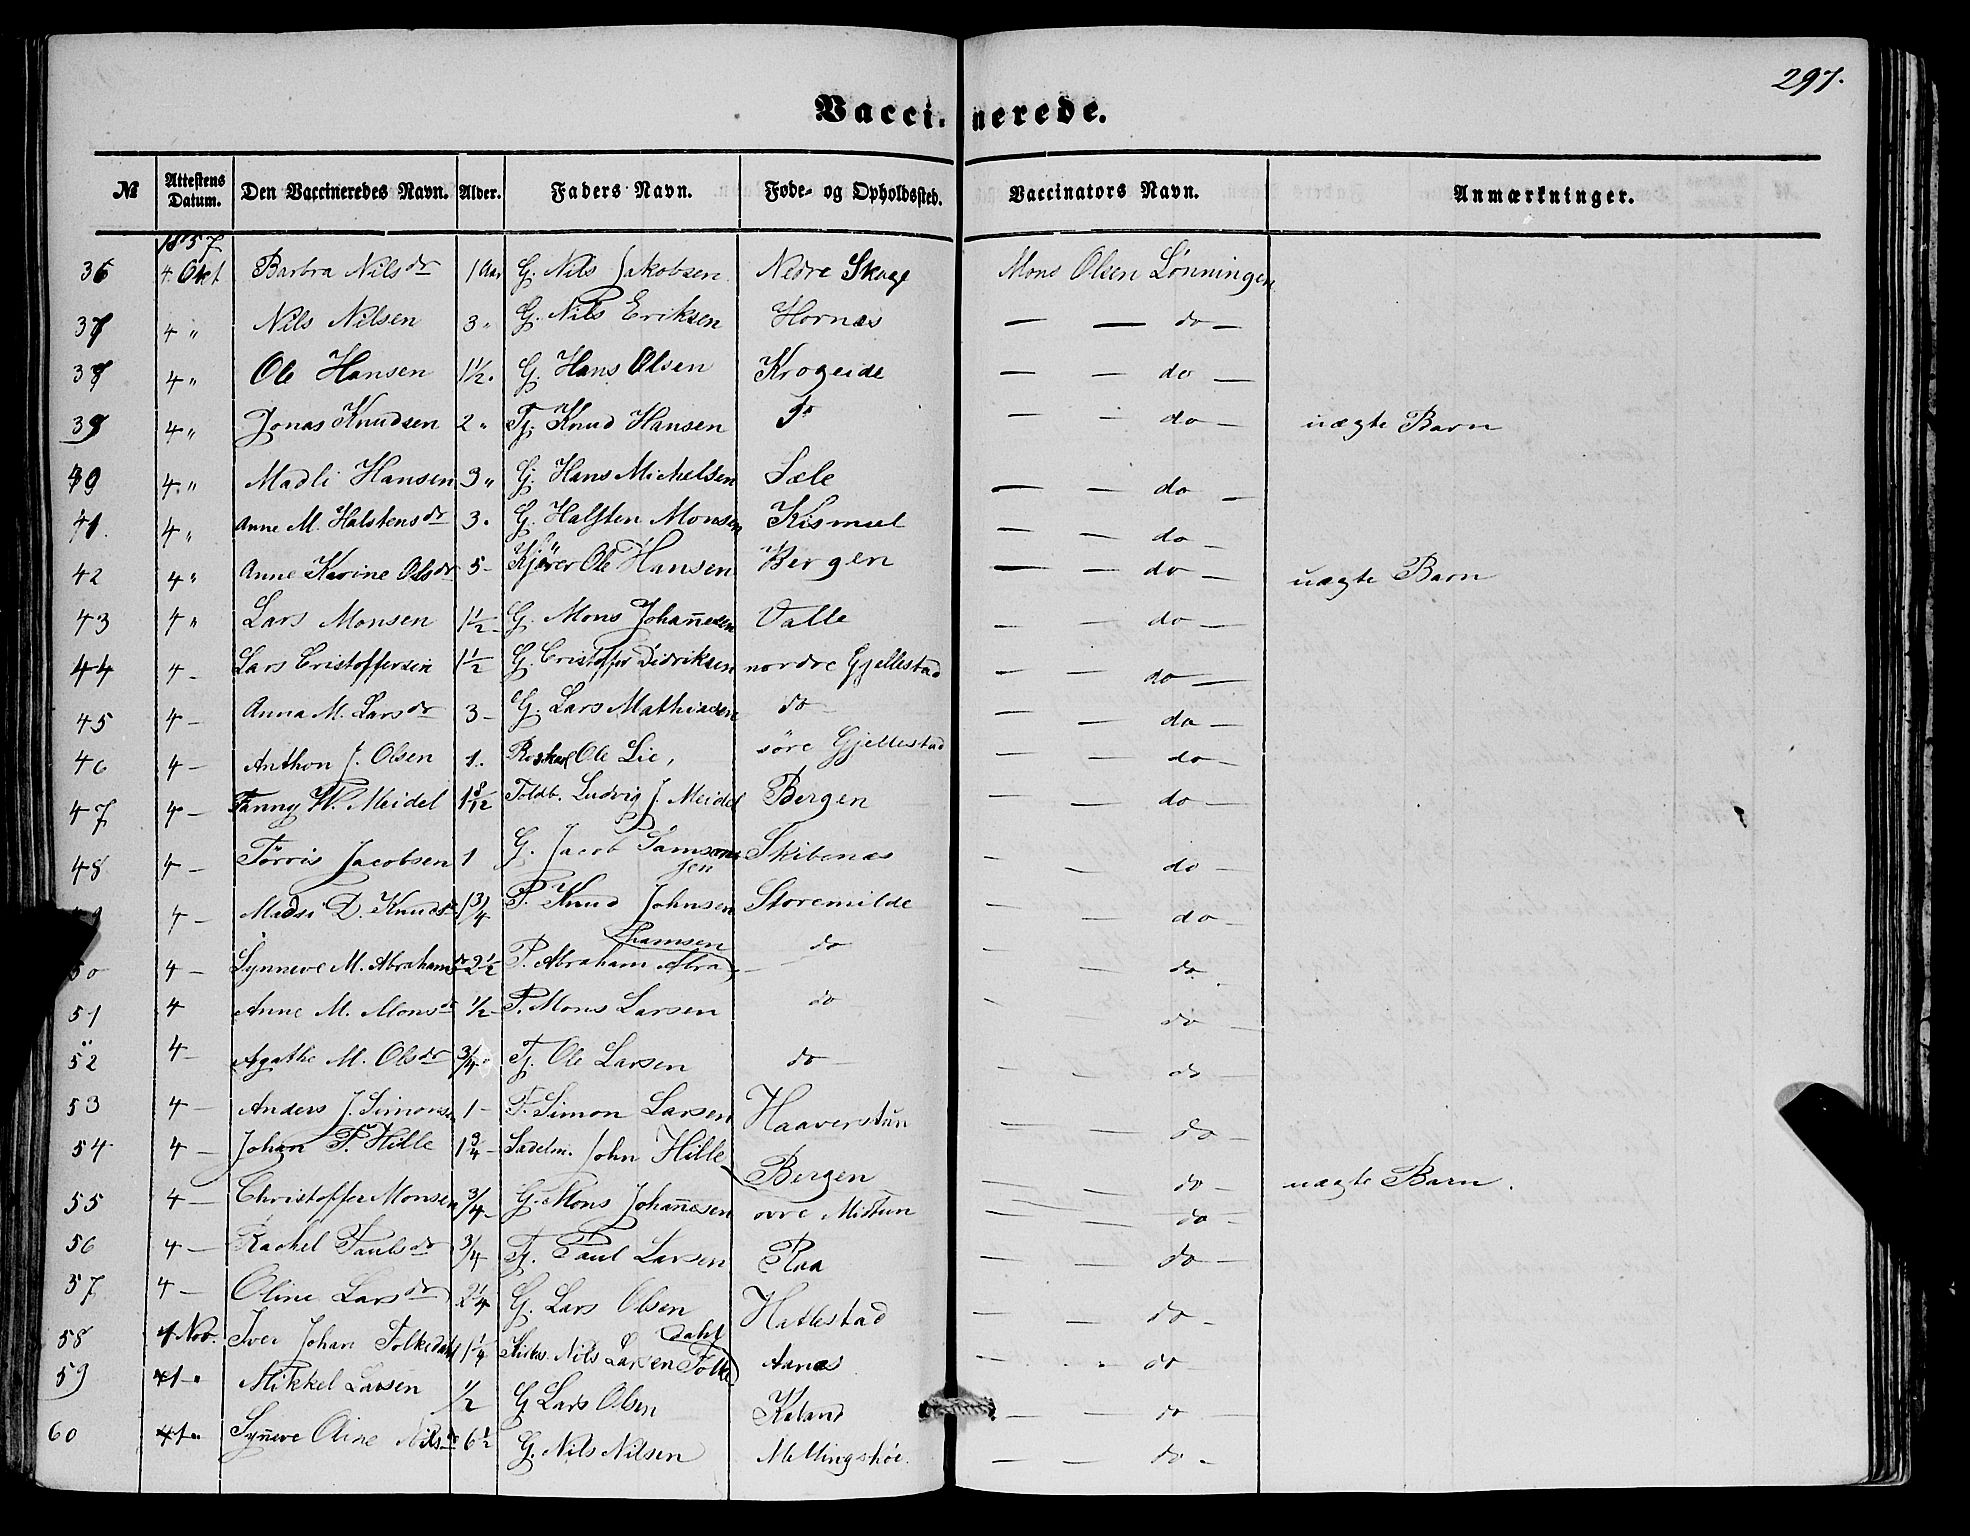 297.
Vaccinerede.
№ Attestens Datum. Den Vaccineredes Navn. Alder. Faders Navn. Føde- og Opholdssted. Vaccinators Navn. Anmærkninger.
1857
36 4. Okt Barbra Nilsdr 1 Aar G. Nils Jakobsen Nedre Skage Mons Olsen Lønningen
37 4 " Nils Nilsen 3 " G. Nils Eriksen Hornæs — — do —
38 4 " Ole Hansen 1½. G. Hans Olsen Krogeide — — do —
39 4 " Jonas Knudsen 2 " Tj. Knud Hansen do — — do — uægte Barn
40 4 " Madli Hansen 3 " G. Hans Michelsen Sæle — — do —
41. 4 " Anne M. Halstensdr 3. G. Halsten Monsen — — do —
42 4 " Anne Karine Olsdr 5 - Ole Hansen Bergen — — do — uægte Barn
43 4 " Lars Monsen 1½ G. Mons Johannesen Valle — — do —
44 4 - Lars Cristoffersen 1½ G. Cristoffer Didriksen nordre Gjellestad — — do —
45 4 - Anna M. Larsdr 3 - G. Lars Mathiasen do — — — do —
46 4 — Anthon J. Olsen 1. Ole Lie, søre Gjellestad — — do —
47 4 — Fanny W. Meidel 1 8/12 Toldb. Ludvig J. Meidel Bergen — — do —
48 4 — Tørris Jacobsen 1 G. Jacob Samson
sen Skibenæs — — do —
4 — Madsi D. Knudsdr 1¾ P. Knud Johnsen Storemilde — — do —
hamsen
50 4 — Synneve M. Abrahamsdr 2½ P. Abraham Abra do — — do
51 4 Anne M. Monsdr ½ - P. Mons Larsen do — — do —
52 4 - Agathe M. Olsdr ¾ Tj. Ole Larsen do — — — do —
53 4 — Anders J. Simonsen 1 - P. Simon Larsen Haaverstun — — do —
54 4 — Johan P. Hille 1¾ - Sadelm. John Hille Bergen — — do — uægte Barn.
55 4 — Christoffer Monsen ¾ G. Mons Johannesen øvre Mistun — — do —
56 4 — Rachel Paulsdr ¾ Tj. Paul Larsen Raa — — do —
57 4 — Oline Larsdr 2¼ G. Lars Olsen Hatlestad — — do —
dahl
58 1 Nov. Iver Johan Folkedahl 1¼ Nils Larsen Folke Aanæs — . . do —
59 1 - Mikkel Larsen ½ G Lars Olsen Kaland — — do —
60 1 - Synneve Oline Nilsdr 6½ G. Nils Nilsen — — do -